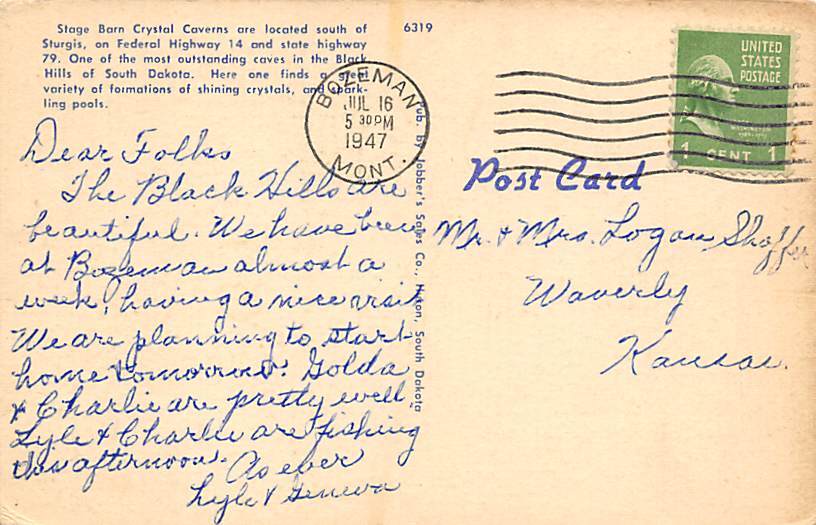 Stage Barn Crystal Caverns are located south of
Sturgis, on Federal Highway 14 and state highway
79. One of the most outstanding caves in the Black
Hills of South Dakota. Here one finds a great
variety of formations of shining crystals, and spark-
ling pools.
6319
BOZEMAN
JUL 16
5 30 PM
1947
MONT.
UNITED
STATES
POSTAGE
WASHINGTON
1 CENT 1
Post Card
Pub. By Jobber's Sales Co., Huron, South Dakota
Dear Folks
The Black Hills are
beautiful. We have been
at Bozeman almost a
week, having a nice visit
We are planning to start
home tomorrow. Golda
& Charlie are pretty well,
Lyle & Charlie are fishing
this afternoon. As ever
Lyle & Geneva
Mr. & Mrs. Logan Shaffer
Waverly
Kansas.